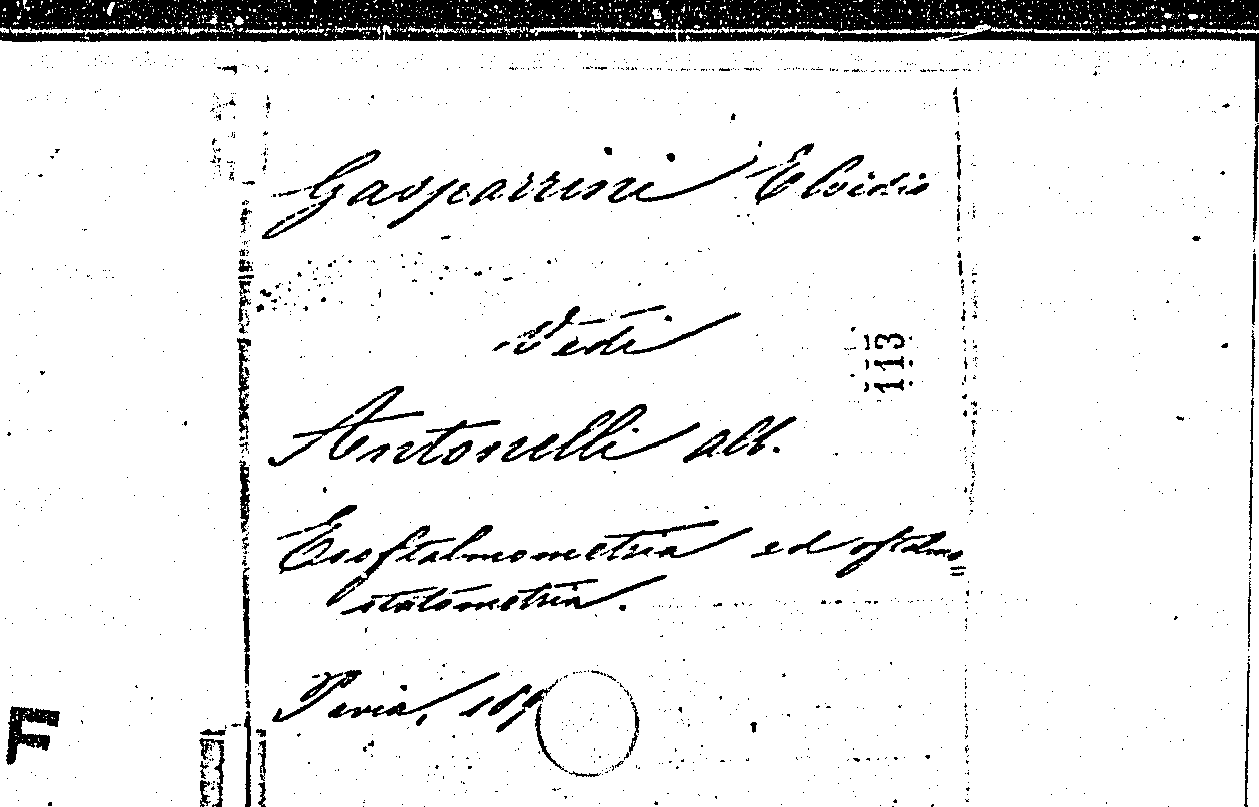 Gasparrini Elvidio
Vedi
113
Antonelli alb.
Esoftalmometria ed oftalmo=
statometria.
Pavia, 189
F